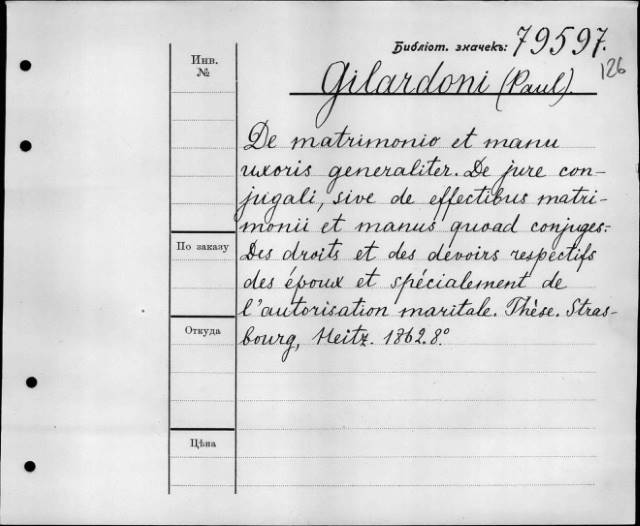 Библіот. значекъ: 79597.
126
Инв.
№
Gilardoni (Paul).
De matrimonio et manu
uxoris generaliter. De jure con-
jugali, sive de effectibus matri-
monii et manus quoad conjuges.-
Des droits et des devoirs respectifs
des époux et spécialement de
l'autorisation maritale. Thèse. Stras-
bourg, Heitz. 1862. 8º
По заказу
Откуда
Цѣна